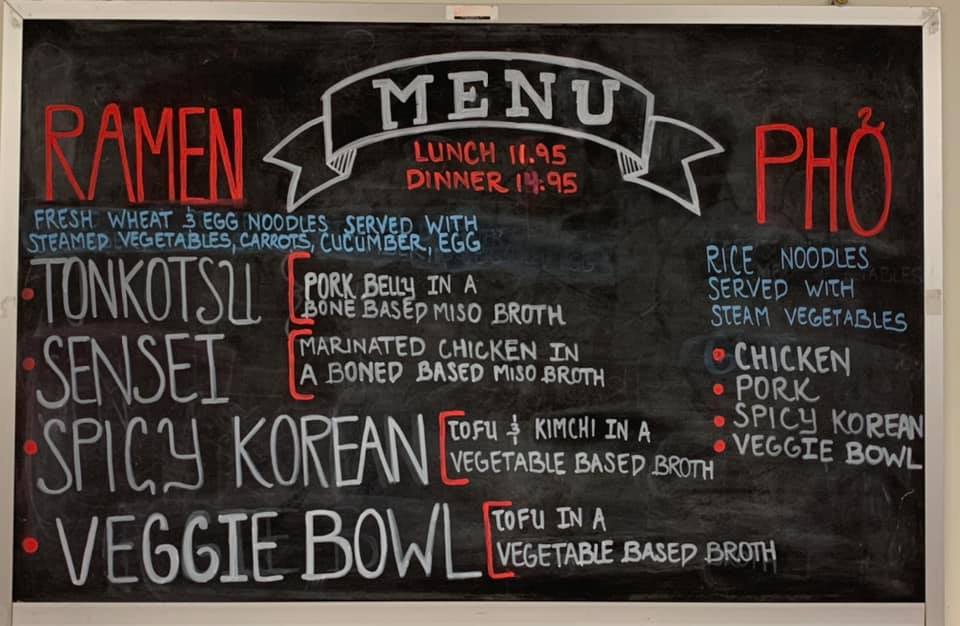 MENU
LUNCH 11.95
DINNER 14.95
RAMEN
FRESH WHEAT & EGG NOODLES SERVED WITH
STEAMED VEGETABLES, CARROTS, CUCUMBER, EGG
• TONKOTSU
PORK BELLY IN A
BONE BASED MISO BROTH
• SENSEI
MARINATED CHICKEN IN
A BONED BASED MISO BROTH
• SPICY KOREAN
TOFU & KIMCHI IN A
VEGETABLE BASED BROTH
• VEGGIE BOWL
TOFU IN A
VEGETABLE BASED BROTH
PHỞ
RICE NOODLES
SERVED WITH
STEAM VEGETABLES
• CHICKEN
• PORK
• SPICY KOREAN
• VEGGIE BOWL